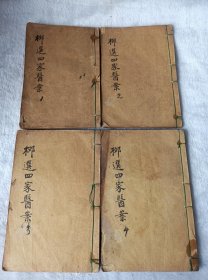 柳選四家醫案
柳選四家醫案
柳選四家醫案
柳選四家醫案